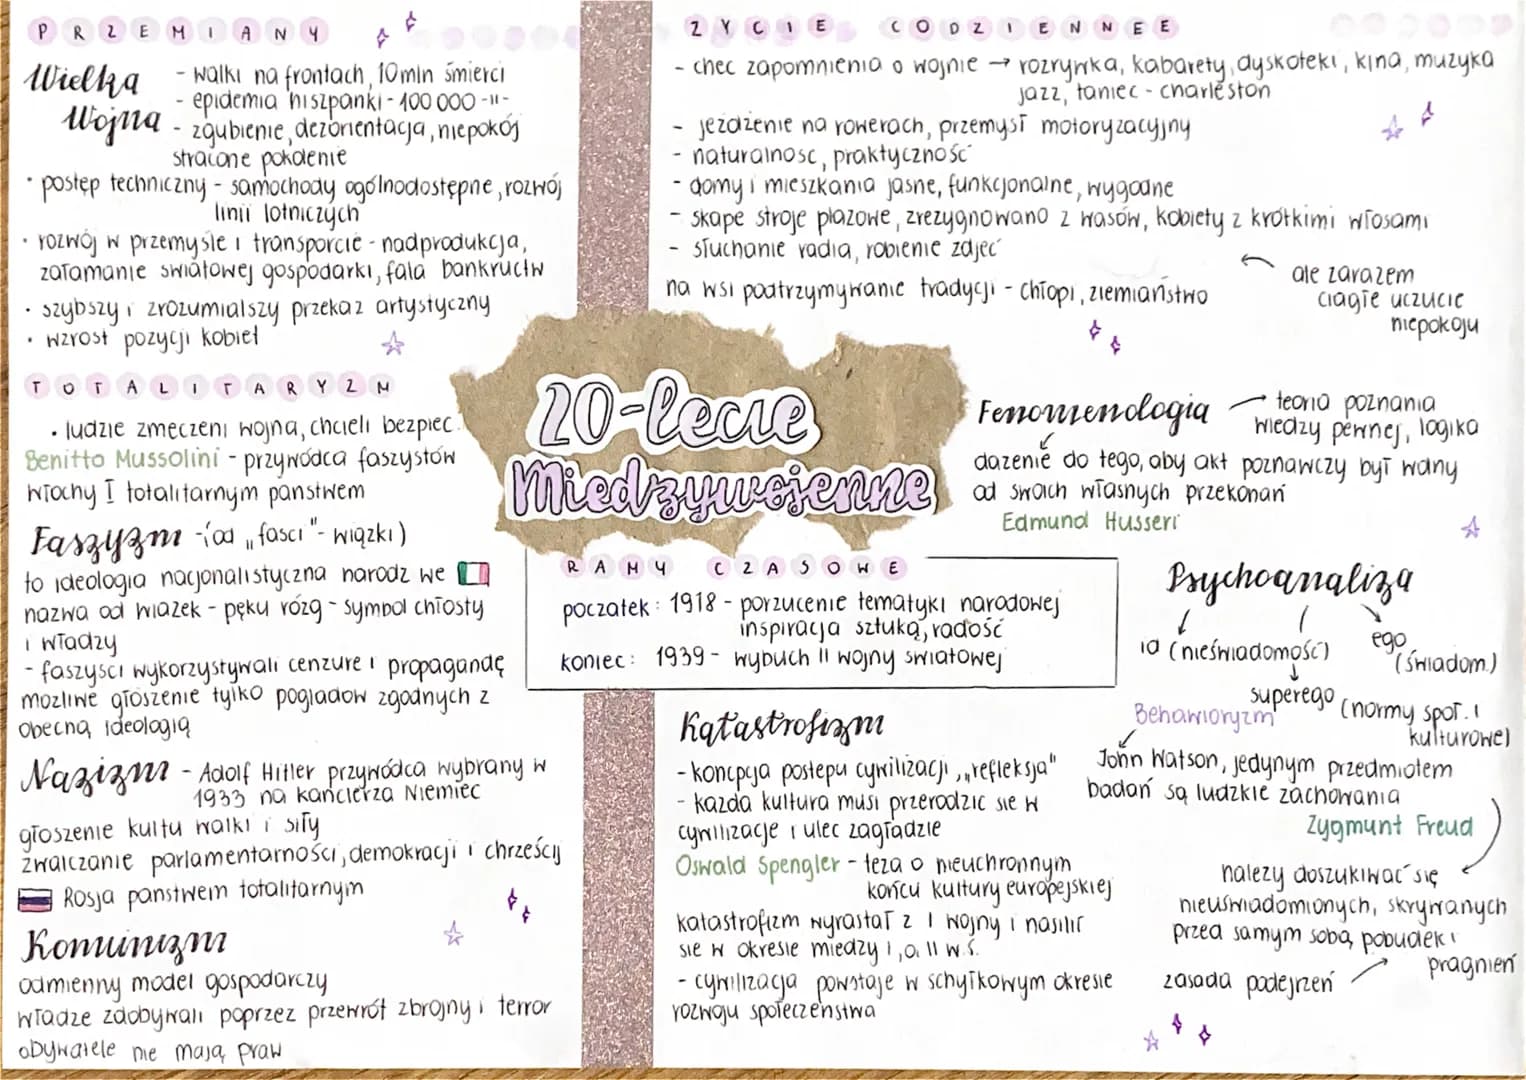 PRZEMIANY
Wielka Wojna
- walki na frontach, 10mln śmierci
- epidemia hiszpanki - 100 000 -11-
- zgubienie, dezorientacja, niepokój
stracone pokolenie
• postęp techniczny - samochody ogólnodostępne, rozwój
linii lotniczych
• rozwój w przemyśle i transporcie - nadprodukcja,
załamanie swiatowej gospodarki, fala bankructw
• szybszy i zrozumialszy przekaz artystyczny
• wzrost pozycji kobiet
TOTALITARYZM
• ludzie zmeczeni wojna, chcieli bezpiec.
Benitto Mussolini - przywódca faszystów
włochy I totalitarnym panstwem
Faszyzm - (od „fasci" - wiązki)
to ideologia nacjonalistyczna narodz we
nazwa od wiazek - pęku rózg - symbol chłosty
i władzy
- faszysci wykorzystywali cenzure i propagandę
mozliwe głoszenie tylko pogladow zgodnych z
obecną ideologią
Nazizm - Adolf Hitler przywódca wybrany w
1933 na kanclerza Niemiec
głoszenie kultu walki i siły
zwalczanie parlamentarności, demokracji i chrześcij
Rosja panstwem totalitarnym
Komunizm
odmienny model gospodarczy
władze zdobywali poprzez przewrót zbrojny i terror
obywatele nie mają praw
ZYCIE CODZIENNEE
- chec zapomnienia o wojnie → rozrywka, kabarety, dyskoteki, kina, muzyka
jazz, taniec - charleston
- jeżdżenie na rowerach, przemysł motoryzacyjny
- naturalnosc, praktyczność
- domy i mieszkania jasne, funkcjonalne, wygodne
- skape stroje plazowe, zrezygnowano z wasów, kobiety z krótkimi włosami
- słuchanie radia, robienie zdjęć
na wsi podtrzymywanie tradycji - chłopi, ziemiaństwo
ale zarazem
ciagłe uczucie
niepokoju
20-lecie
Miedzywojenne
RAMY CZASOWE
początek: 1918 - porzucenie tematyki narodowej
inspiracja sztuką, radość
koniec: 1939 - wybuch II wojny swiatowej
Fenomenologia → teoria poznania
wiedzy pewnej, logika
dazenie do tego, aby akt poznawczy był wolny
od swoich własnych przekonań
Edmund Husserl
Psychoanaliza
id (nieświadomość)
ego
(świadom)
superego (normy społ. i
kulturowe)
Behawioryzm
John Watson, jedynym przedmiotem
badań są ludzkie zachowania
Zygmunt Freud
nalezy doszukiwać się
nieuswiadomionych, skrywanych
przed samym sobą pobudek i
pragnień
zasada podejrzeń
Katastrofizm
- koncpcja postepu cywilizacji „refleksja"
- kazda kultura musi przerodzic sie w
cywilizacje i ulec zagładzie
Oswald Spengler - teza o nieuchronnym
końcu kultury europejskiej
katastrofizm wyrastał z I wojny i nasilił
sie w okresie miedzy I, a II w.ś.
- cywilizacja powstaje w schyłkowym okresie
rozwoju społeczeństwa